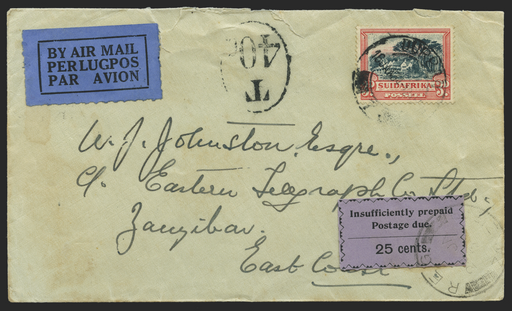 BY AIR MAIL
PER LUGPOS
PAR AVION
T
40
SUIDAFRIKA
POSSEËL
W. J. Johnston Esqre.,
c/o Eastern Telegraph Co. Ltd.,
Zanzibar.
East Coast
Insufficiently prepaid
Postage due.
25 cents.